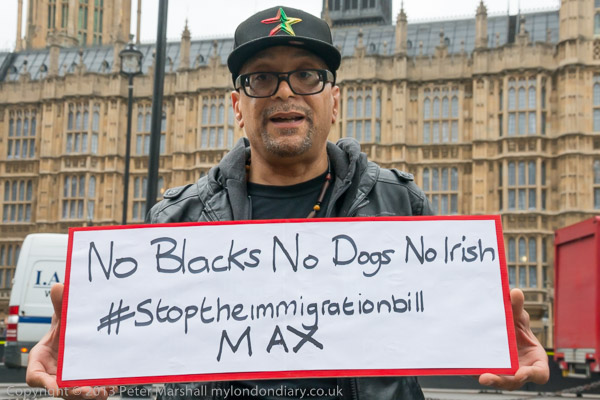 No Blacks No Dogs No Irish
#Stoptheimmigrationbill
MAX
L.A.
Copyright © 2013 Peter Marshall mylondondiary.co.uk